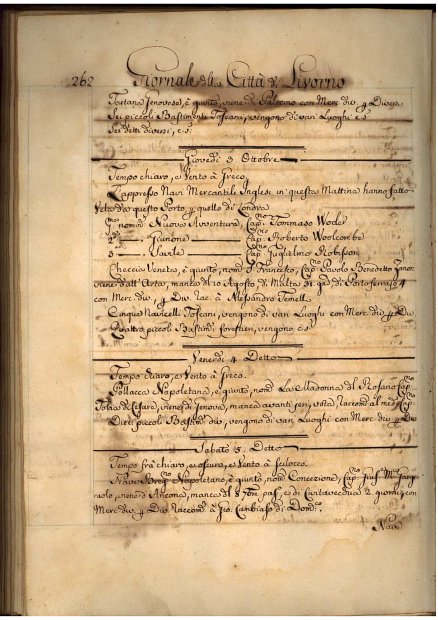 262 Giornale della Città di Livorno
Tartana Genovese, è giunta, viene di Palermo con Merc: div: p Diversi
Sei piccoli Bastimenti Toscani, vengono di vari Luoghi e s:
Sei detti diversi, e s:
Giovedì 3. Ottobre
Tempo chiaro, e Vento à Greco.
L'appresso Navi Mercantili Inglesi in questa Mattina hanno fatto
Vela da questo Porto p quello di Londra
nom: Nuova Avventura, Cap:no Tommaso Wooler
2: Giunone Cap:no Roberto Woolcombe
3: Cap:no Guglielmo Robisson
Checcia Veneta, è giunta, nom: S: Francesco, Cap: Paolo Benedetto
viene dall' Arta, manca di 10 Agosto, di Malta 31 di Portoferraio 4
con Merc: div: p Div: Rac: à Alessandro
Cinque Navicelli Toscani, vengono di vari Luoghi con Merc: div: p Div:
Quattro piccoli Bastim:ti forestieri, vengono e s:
Venerdì 4. Detto
Tempo chiaro, e Vento à Greco.
Pollacca Napoletana, è giunta, nom: La Madonna del Rosario Cap:
Tobia di viene di Genova, manca avanti ieri, vota, Raccom: al med: Cap:
Dieci piccoli Bastim:ti div: vengono di vari Luoghi con Merc: div: p Div:
Sabato 5. Detto
Tempo frà chiaro, e oscuro, e Vento à Scilocco.
Nave Napoletana, è giunta, nom: Concezione, Cap: Gius: M:a
viene d' Ancona, manca del 8 7bre pas:, e di Civitavecchia 2. giorni, con
Merc: div: p Div: Raccom: à Gio: Cambiaso di Dom:co
Nave